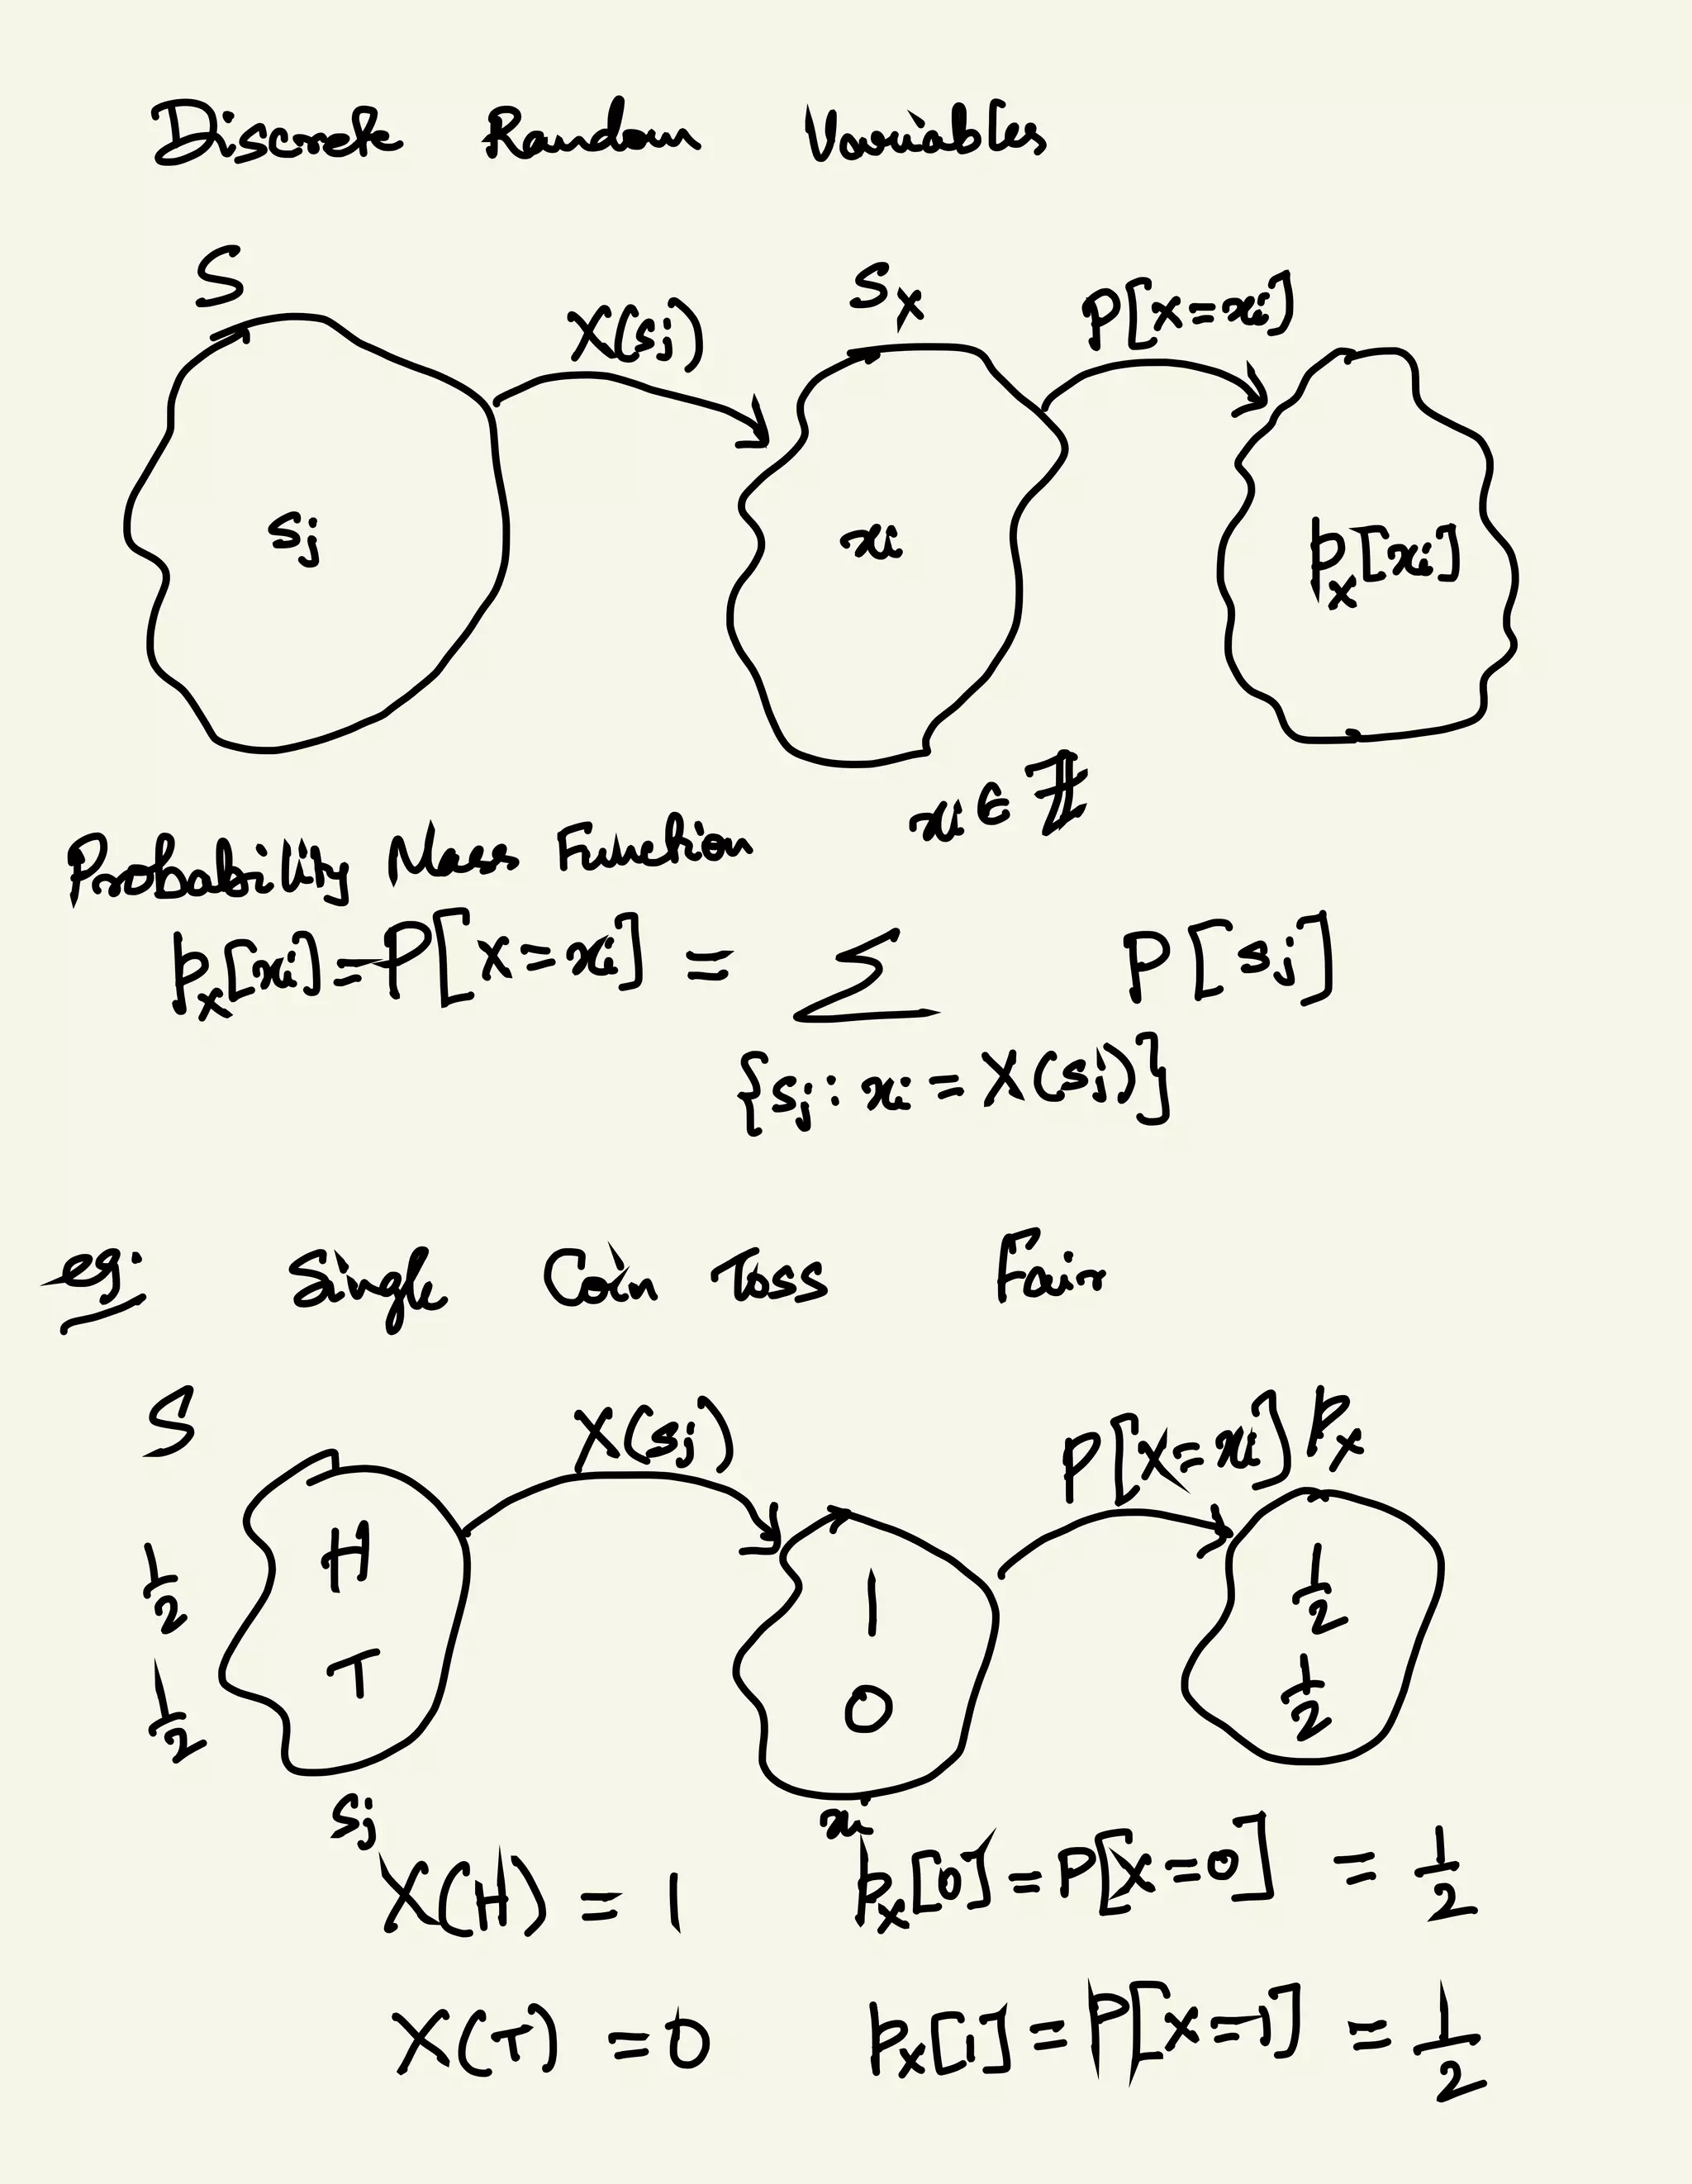 Discrete Random Variables
S X(sj) Sx P[X=xi]
sj xi px[xi]
xi ∈ ℤ
Probability Mass Function
px[xi] = P[X=xi] = ∑ P[sj]
{sj : xi = X(sj)}
eg: Single Coin Toss Fair
S X(sj) P[X=xi] Px
1/2 H 1 1/2
1/2 T 0 1/2
sj xi
X(H) = 1 px[0] = P[X=0] = 1/2
X(T) = 0 px[1] = P[X=1] = 1/2